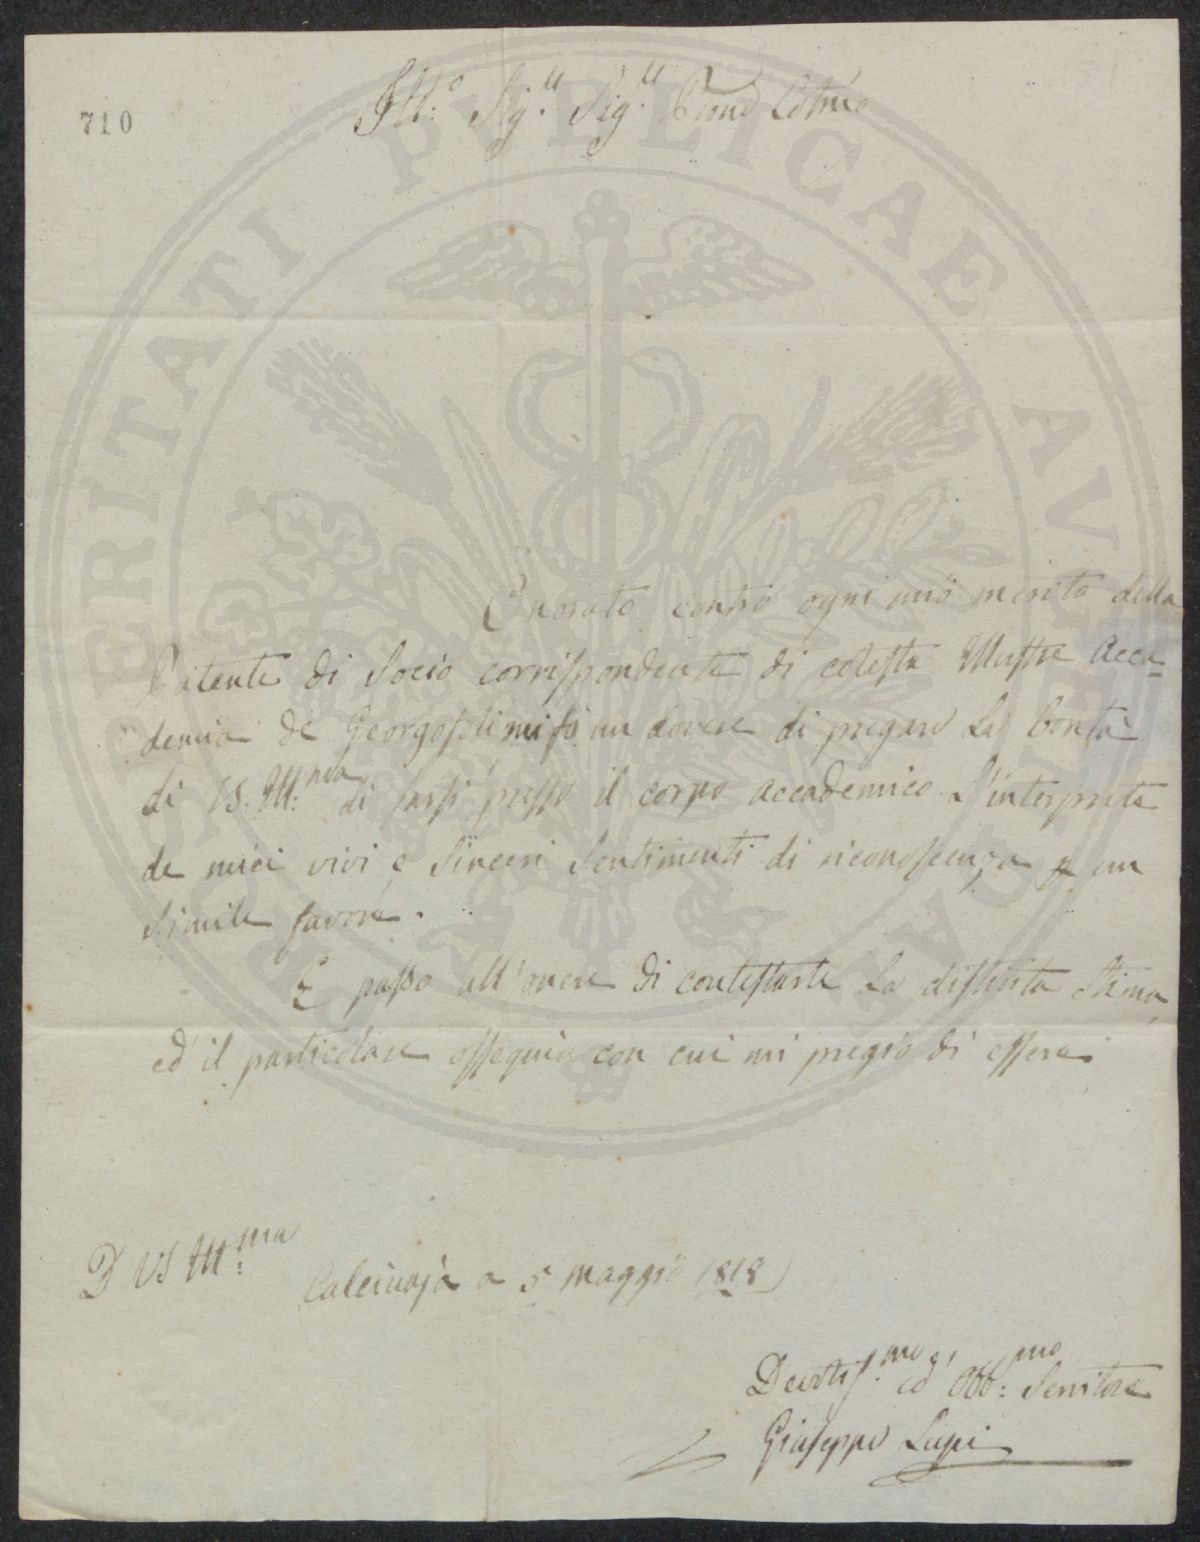 710
Ill.º Sig.re Sig.re Pron Colmo
Onorato contro ogni mio merito della
Patente di Socio corrispondente di cotesta Illustre Acca=
demia de Georgofili mi fo un dovere di pregare La bontà
di VS. Ill:ma di farsi presso il corpo accademico L'interprete
de miei vivi e sinceri sentimenti di riconoscenza p un
simile favore.
E passo all'onore di contestarle La distinta stima,
ed il particolare ossequio con cui mi pregio di essere
D VS Ill:ma
Calcinaja a 5 maggio 1818
Devotis.mo ed Obb:mo Servitore
Giuseppe Lupi
PROSPERITATI PVBLICAE AVGENDAE